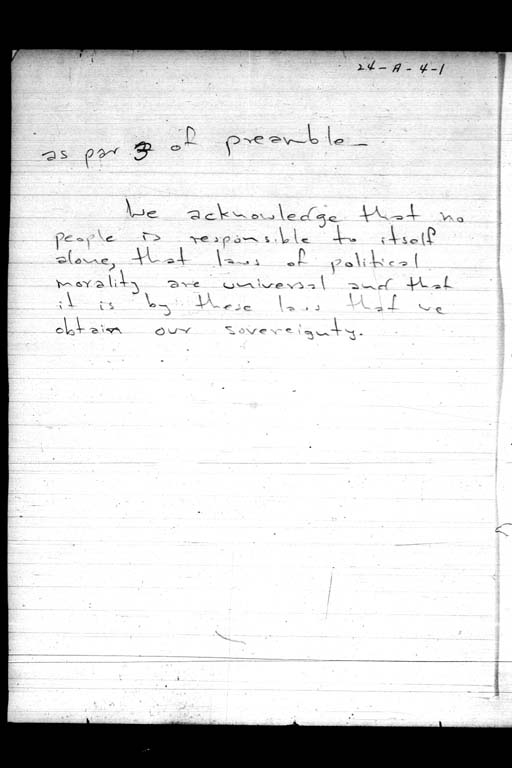 24-A-4-1
as par 3 of preamble—
We acknowledge that no
people is responsible to itself
alone, that laws of political
morality are universal and that
it is by these laws that we
obtain our sovereignty.